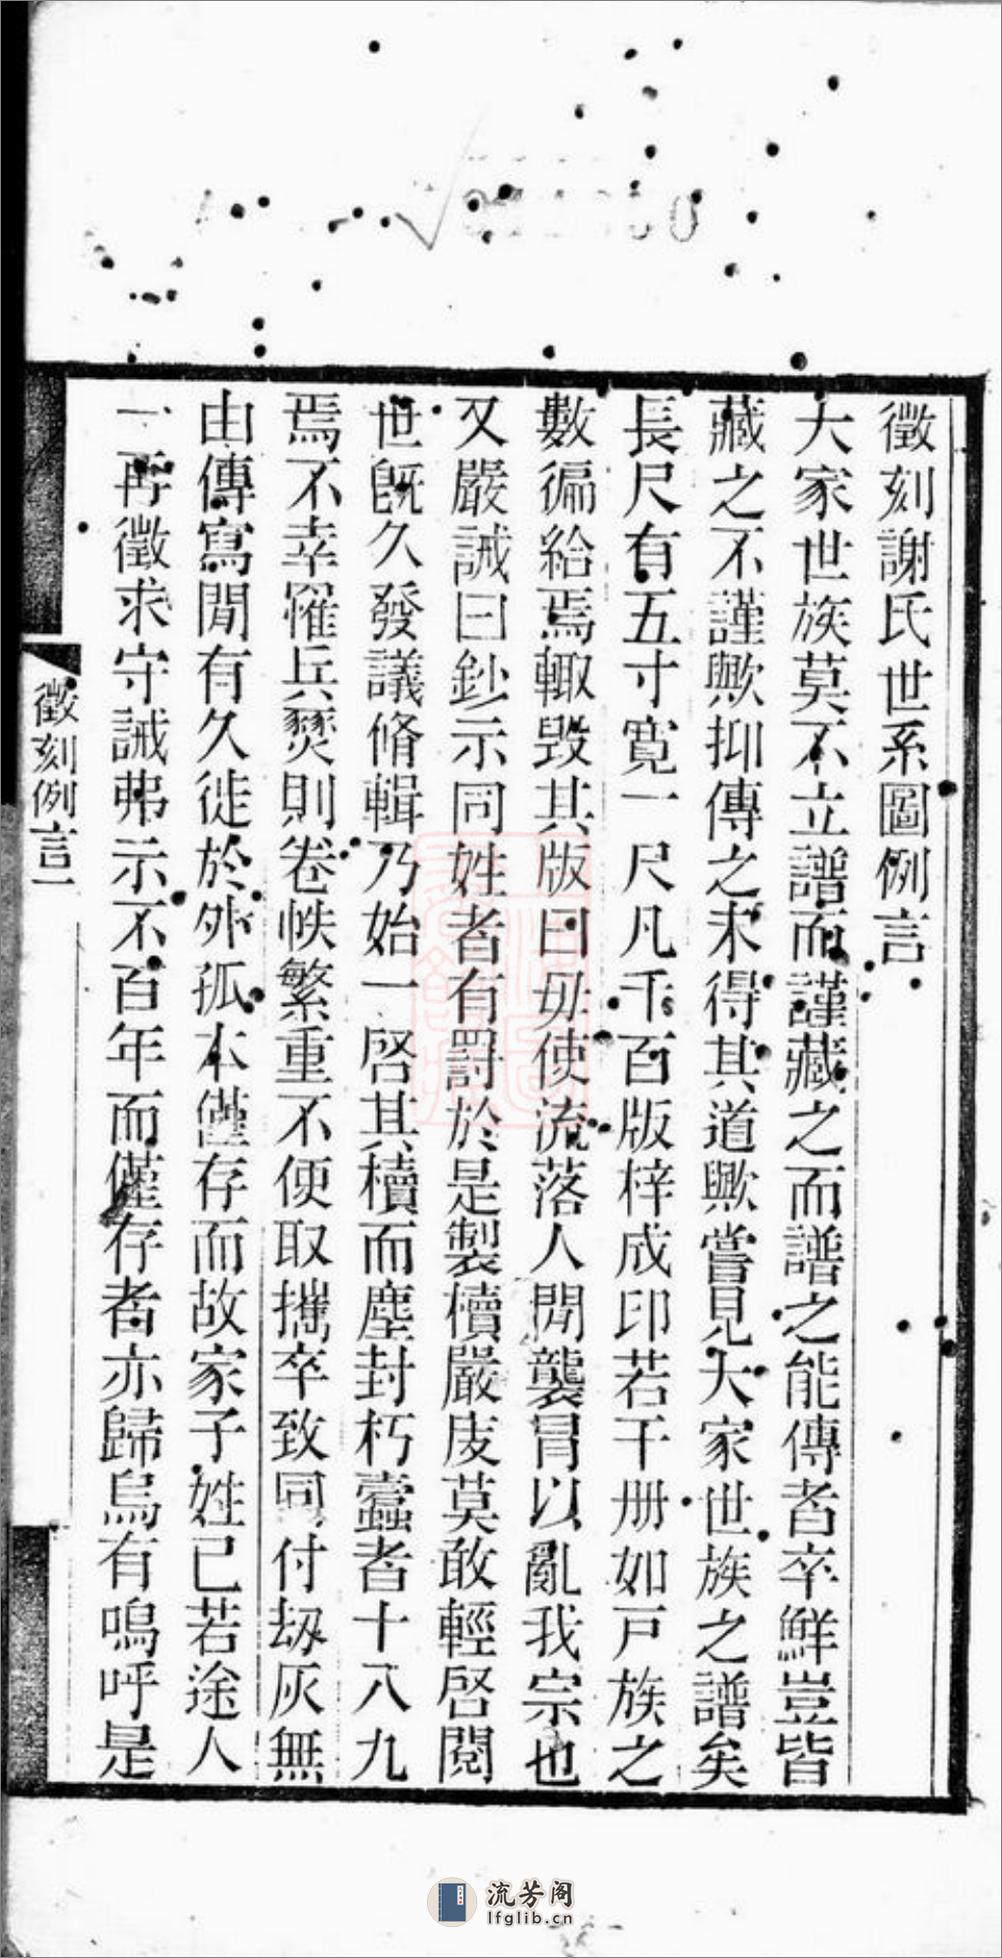 徵刻謝氏世系圖例言
大家世族莫不立譜而謹藏之而譜之能傳者卒鮮豈皆
藏之不謹歟抑傳之未得其道歟嘗見大家世族之譜矣
長尺有五寸寬一尺凡千百版梓成印若干册如戸族之
數徧給焉輙毀其版曰毋使流落人閒襲冒以亂我宗也
又嚴誡曰鈔示同姓者有罸於是製櫝嚴庋莫敢輕啓閱
世旣久發議脩輯乃始一啓其櫝而塵封朽蠹者十八九
焉不幸罹兵燹則卷帙繁重不便取攜卒致同付刼灰無
由傳寫閒有久徙於外孤本僅存而故家子姓已若途人
一再徵求守誡弗示不百年而僅存者亦歸烏有嗚呼是
徵刻例言一
流芳阁
lfglib.cn